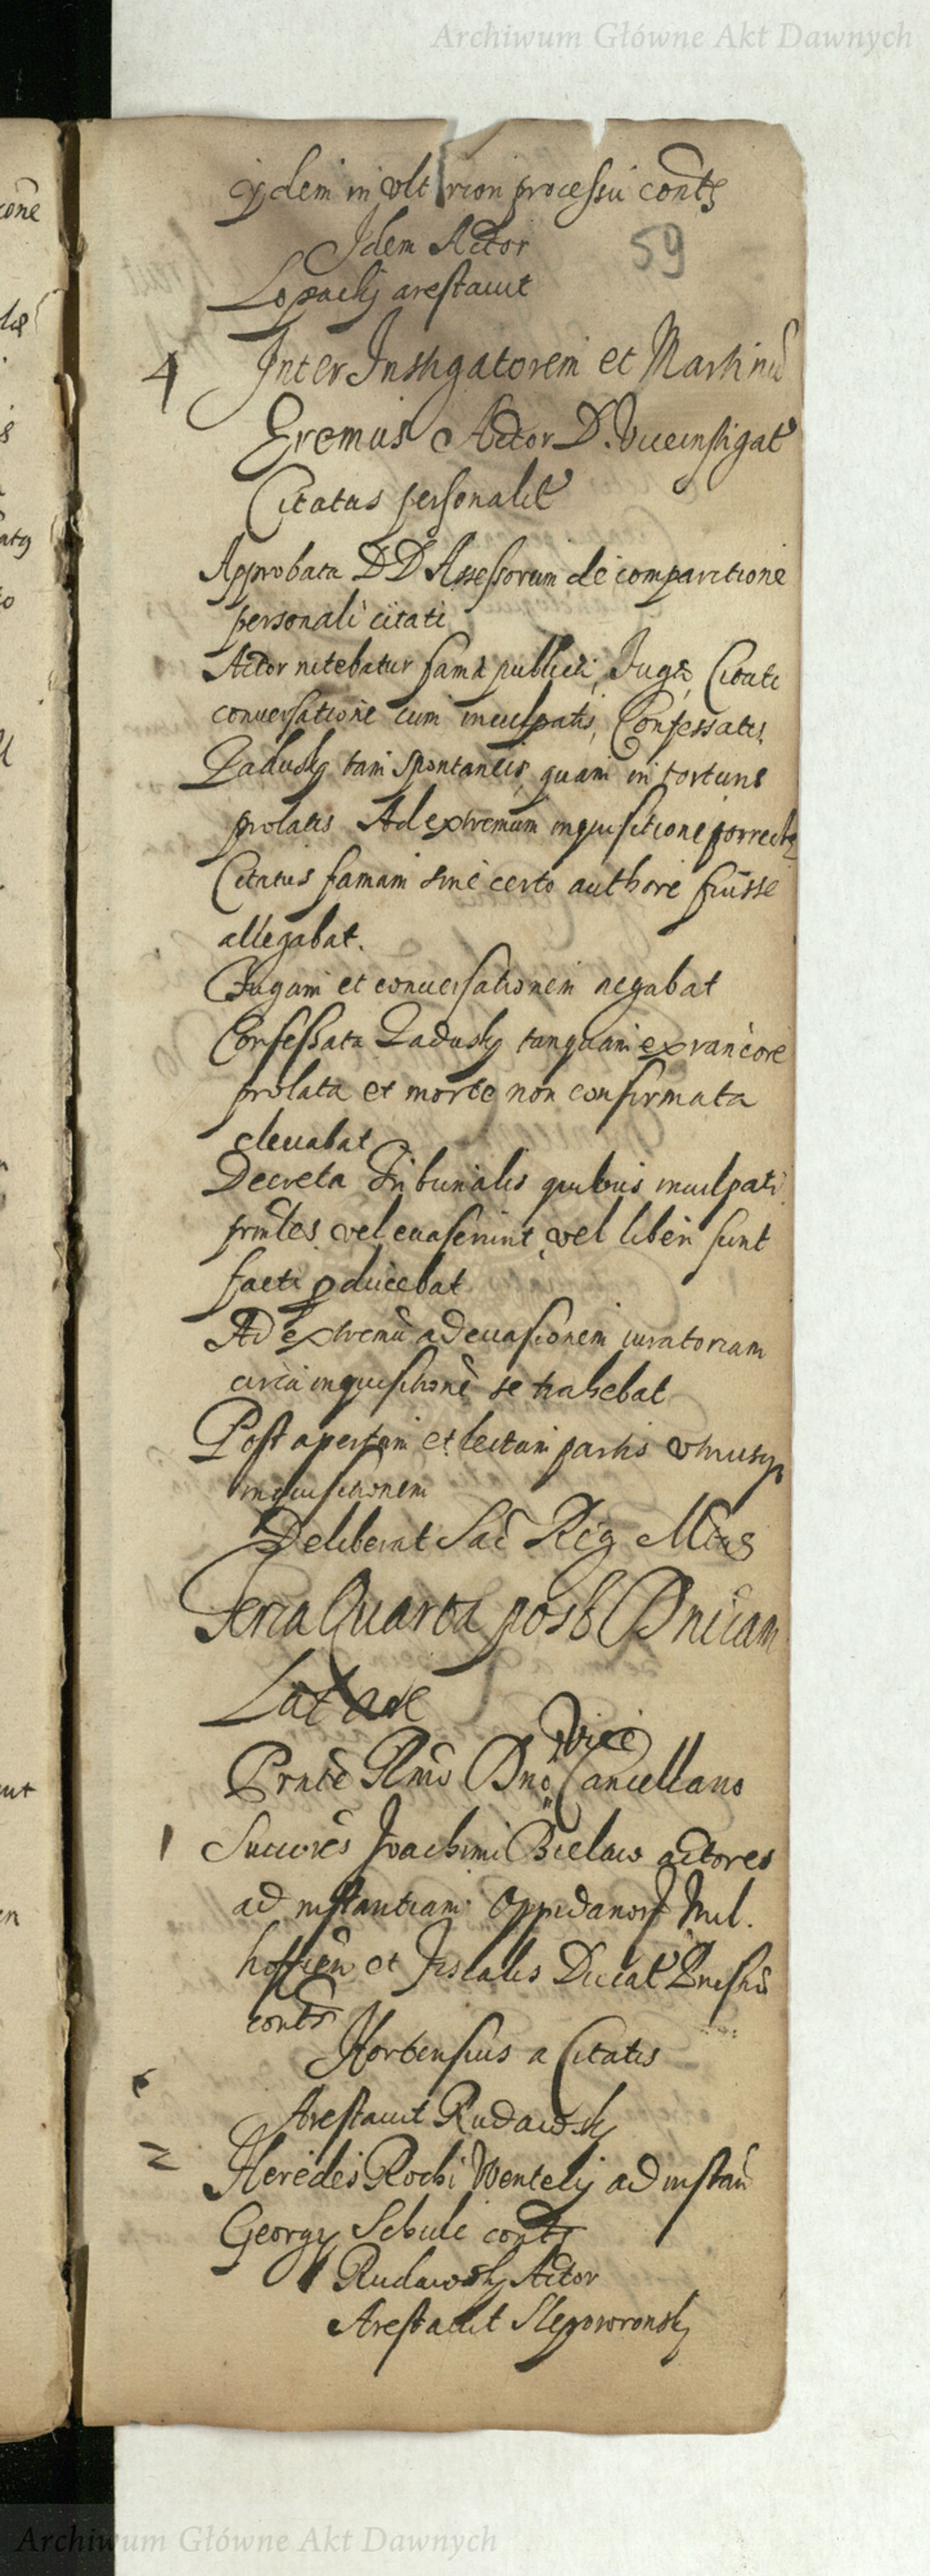 Archiwum Główne Akt Dawnych
ijdem in ult rion processu contŕ
Idem Actor
59
Lopacky arestavit
4 Inter Instigatorem et Martinũ
Eremus Actor D. Viceinstigat
Citatus personalit
Approbata DD Assessorum de comparitione
personali citati
Actor nitebatur fama publica, Fuga, Citati
conversatione cum inculpatis, Confessatis
Zadusky tam spontaneis, quam in torturis
prolatis Ad extremum inquisitione porrecta
Citatus famam sine certo authore fuisse
allegabat.
Fugam et conversationem negabat
Confessata Zadusky tanquam ex rancore
prolata et morte non confirmata
elevabat
Decreta Tribunalis quibus inculpati
similes vel evaserunt, vel liberi sunt
facti pducebat
Ad extremũ ad evasionem iuratoriam
circa inquisitionẽ se trahebat
Post apertam et lectam partis utriusq
inquisitionem
Deliberat Sac Reg Mtas
Feria Quarta post Dnicam
Laetare
Prnte Rmo Dno Vice Cancellario
1 Succres Joachimi Bielaw actores
ad instantiam Oppidanor Mil
hoffien et Fiscalis Ducat
contr
Hortensius a Citatis
Arestavit Rudawsky
2 Heredes Rochi Wentely ad instan
Georgy Schule contr
Rudawsky Actor
Arestavit Slepowronsky
Archiwum Główne Akt Dawnych